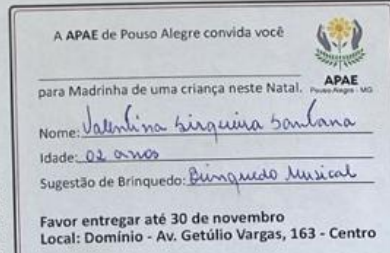 A APAE de Pouso Alegre convida você
APAE
Pouso Alegre - MG
para Madrinha de uma criança neste Natal.
Nome: Valentina Sirqueira Santana
Idade: 02 anos
Sugestão de Brinquedo: Brinquedo Musical
Favor entregar até 30 de novembro
Local: Domínio - Av. Getúlio Vargas, 163 - Centro